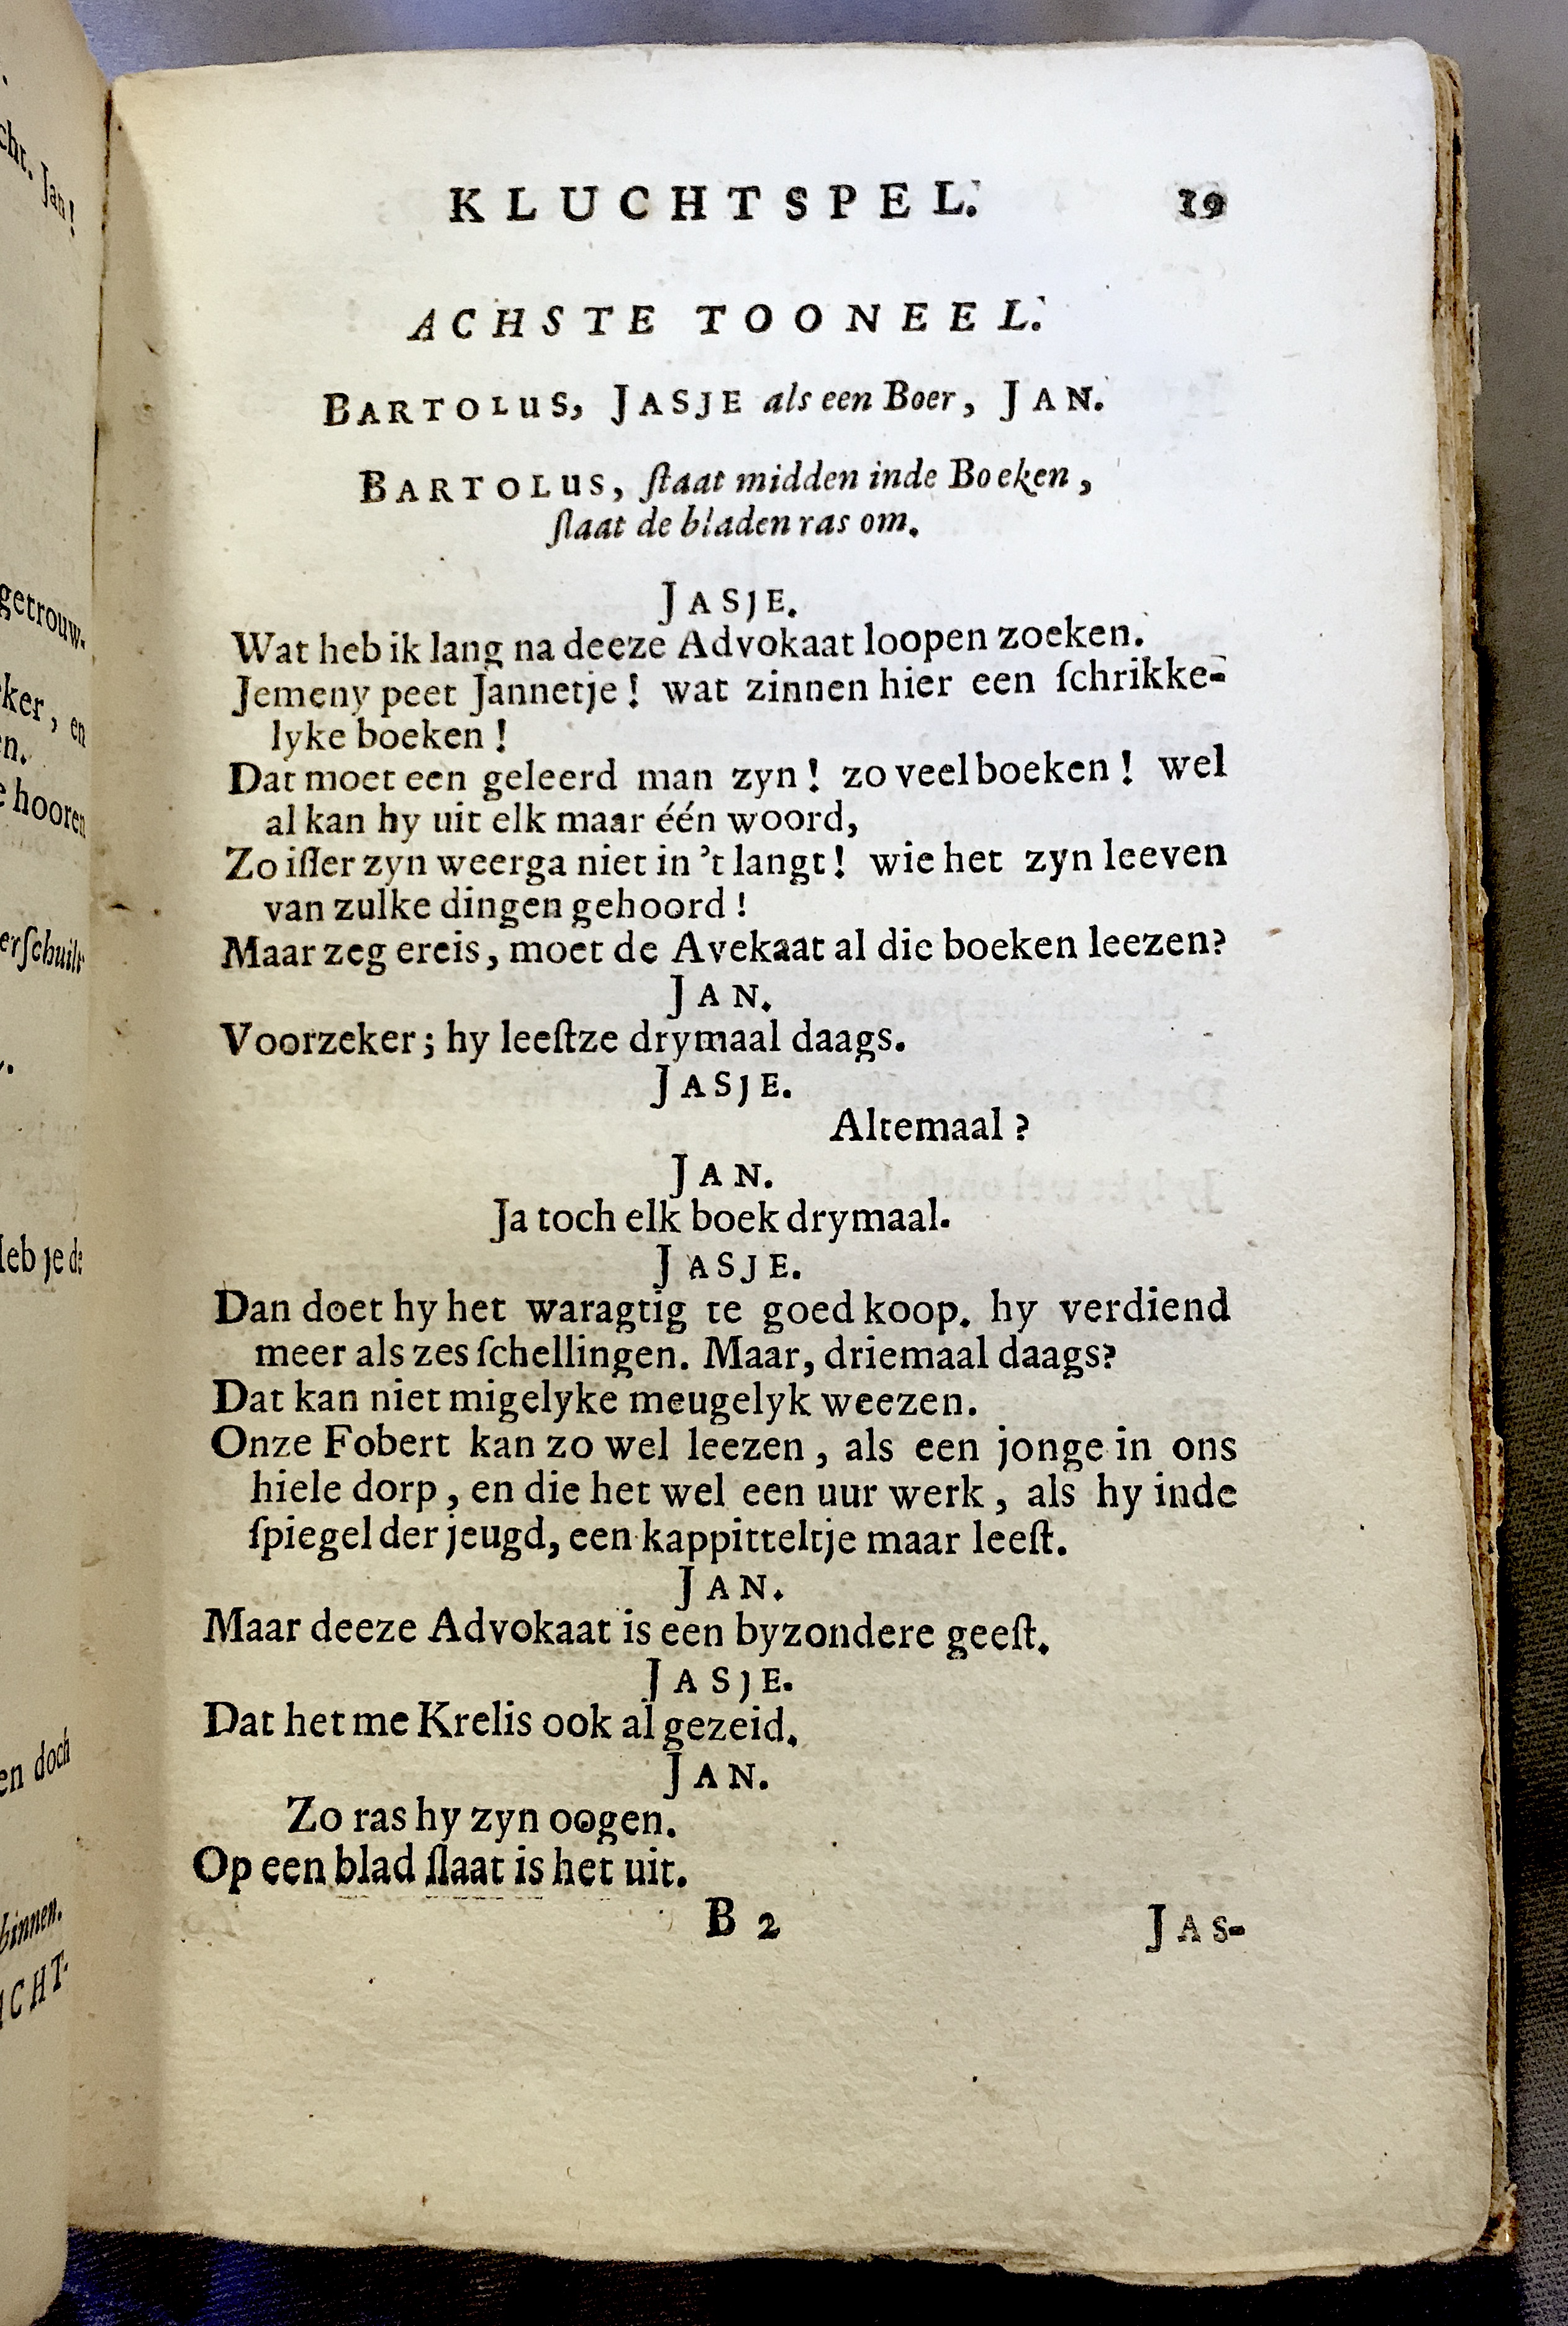 KLUCHTSPEL. 19
ACHSTE TOONEEL.
BARTOLUS, JASJE als een Boer, JAN.
BARTOLUS, ſtaat midden inde Boeken,
ſlaat de bladen ras om.
JASJE.
Wat heb ik lang na deeze Advokaat loopen zoeken.
Jemeny peet Jannetje! wat zinnen hier een ſchrikke-
lyke boeken!
Dat moet een geleerd man zyn! zo veel boeken! wel
al kan hy uit elk maar één woord,
Zo iſſer zyn weerga niet in 't langt! wie het zyn leeven
van zulke dingen gehoord!
Maar zeg ereis, moet de Avekaat al die boeken leezen?
JAN.
Voorzeker; hy leeſtze drymaal daags.
JASJE.
Altemaal?
JAN.
Ja toch elk boek drymaal.
JASJE.
Dan doet hy het waragtig te goed koop. hy verdiend
meer als zes ſchellingen. Maar, driemaal daags?
Dat kan niet migelyke meugelyk weezen.
Onze Fobert kan zo wel leezen, als een jonge in ons
hiele dorp, en die het wel een uur werk, als hy inde
ſpiegel der jeugd, een kappitteltje maar leeſt.
JAN.
Maar deeze Advokaat is een byzondere geeſt.
JASJE.
Dat het me Krelis ook al gezeid.
JAN.
Zo ras hy zyn oogen.
Op een blad ſlaat is het uit.
B 2 JAS-